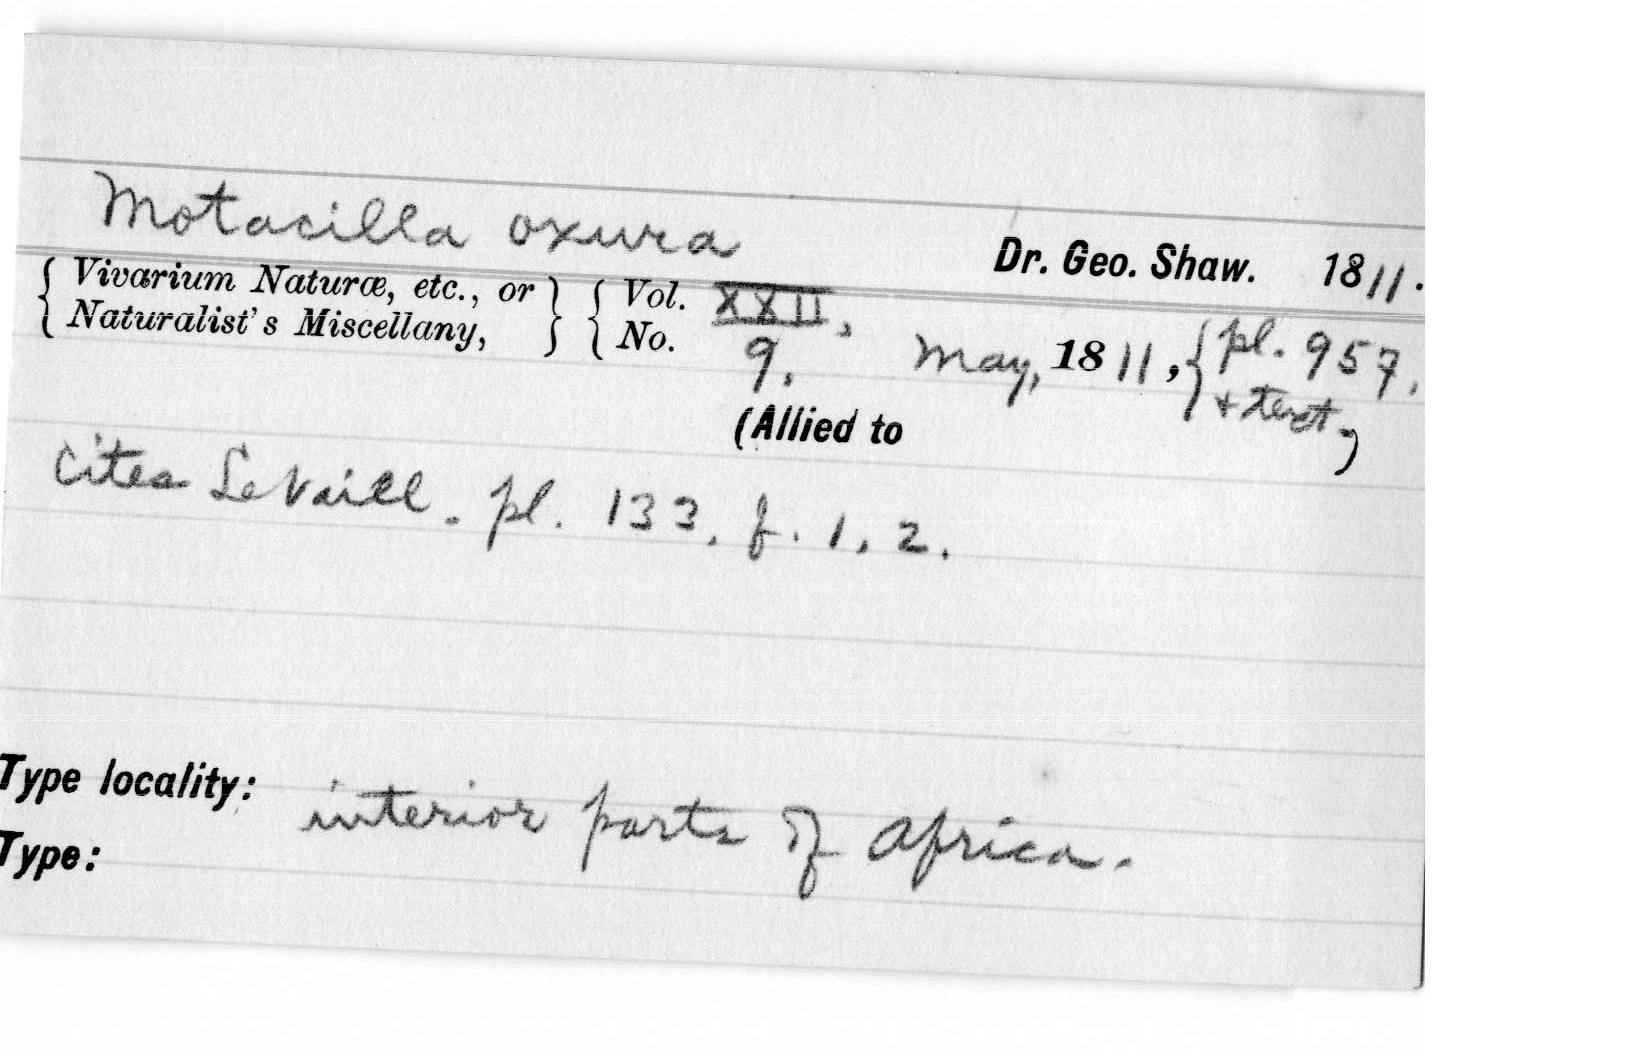 Motacilla oxura Dr. Geo. Shaw. 1811.
{ Vivarium Naturæ, etc., or } { Vol. XXII,
Naturalist's Miscellany, No. 9. May, 1811, { pl. 957.
+ text.)
(Allied to
Cites Le Vaill. pl. 133, f. 1, 2.
Type locality: interior parts of Africa.
Type: